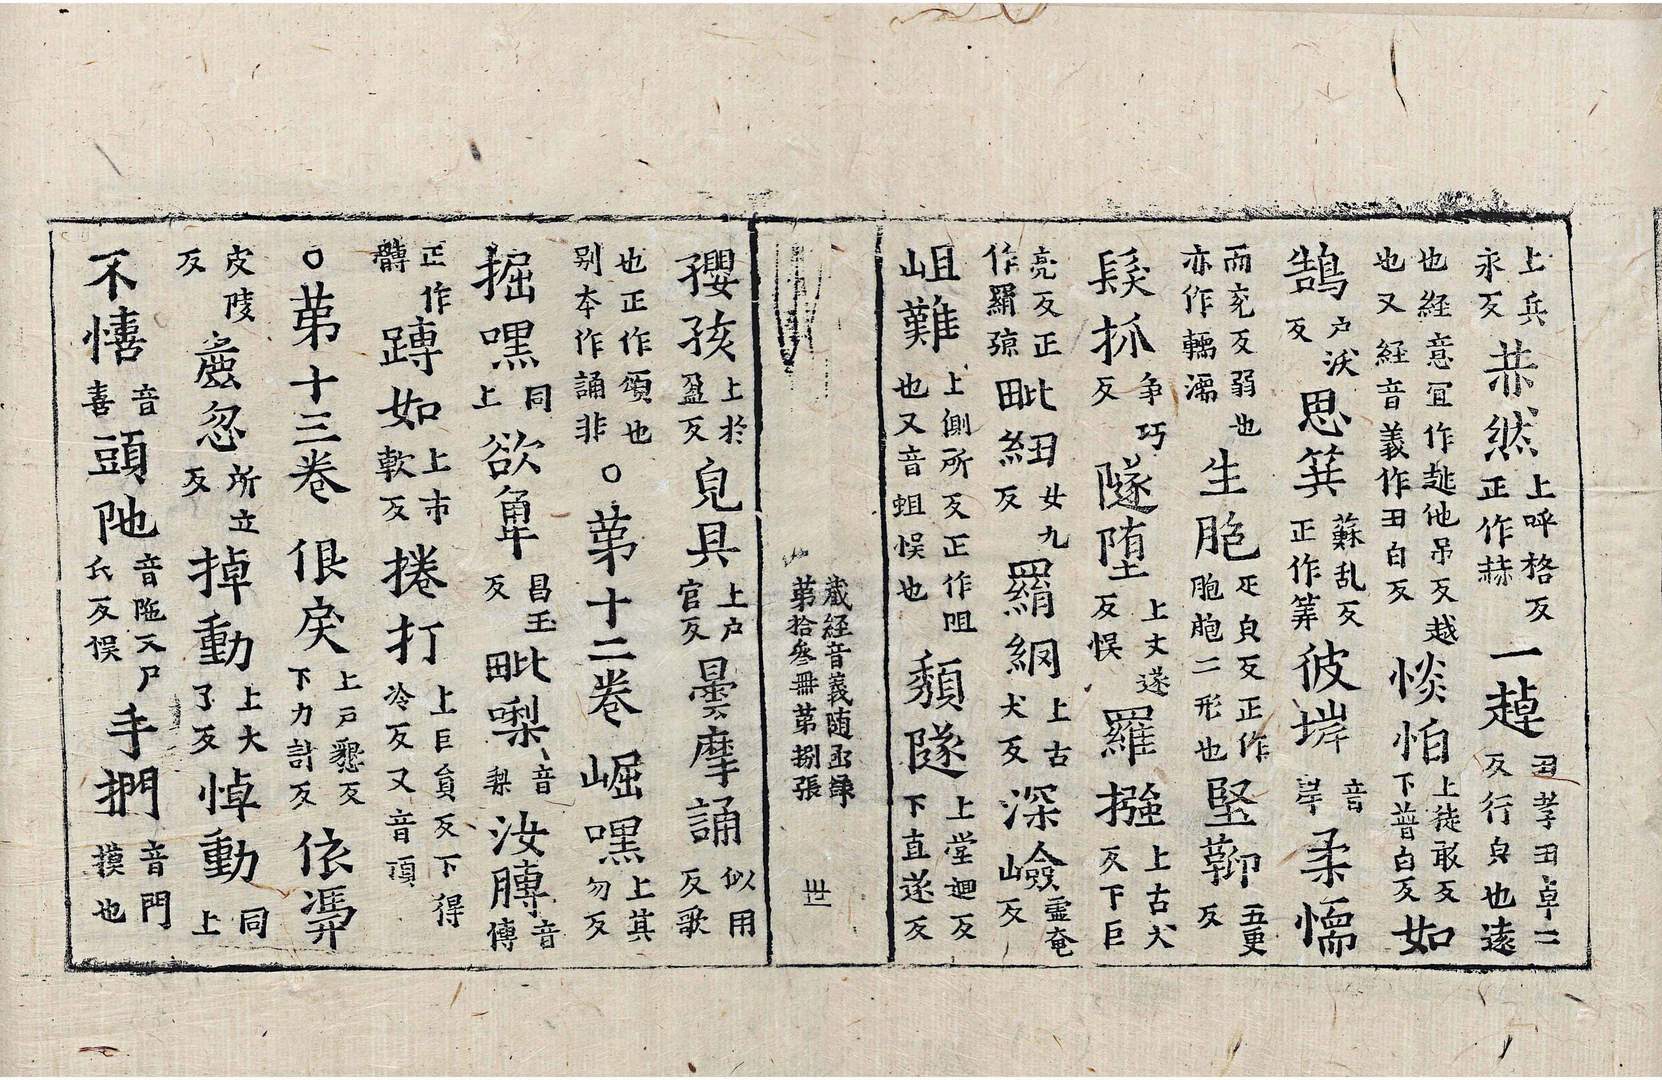 上兵永反㳟然上呼格反正作赫一趠丑孝丑卓二反行皃也遠
也経意冝作趒他吊反越也又経音義作丑白反惔怕上徒敢反下普白反如
鵠戸沃反思筭蘇乱反正作筭彼㟁音岸柔懦
而兖反弱也亦作輭濡生胞疋皃反正作胞皰二形也堅鞕五更反
髮抓争巧反隧堕上丈遂反悮羅撥上古犬反下巨
亮反正作羂弶毗紐女九反羂網上古犬反深嶮霊奄反
岨難上側所反正作咀也又音蛆悮也頽隧上堂廻反下直遂反
蔵経音義随函録第拾叁冊 第捌張 丗
孾孩上於盈反皃具上戸官反曇摩誦似用反歌
也正作頌也别本作誦非○第十二巻 崛嘿上其勿反
掘嘿同上欲㢲昌玉反毗㗚音梨汝膞音傳
正作䏝蹲如上市軟反捲打上巨負反下得冷反又音頂
○第十三巻 佷戾上戸懇反下力計反依馮
皮陵反麁忽所立反掉動上大了反悼動同上
不憘音喜頭陁音陁又尸氏反悮手捫音門摸也